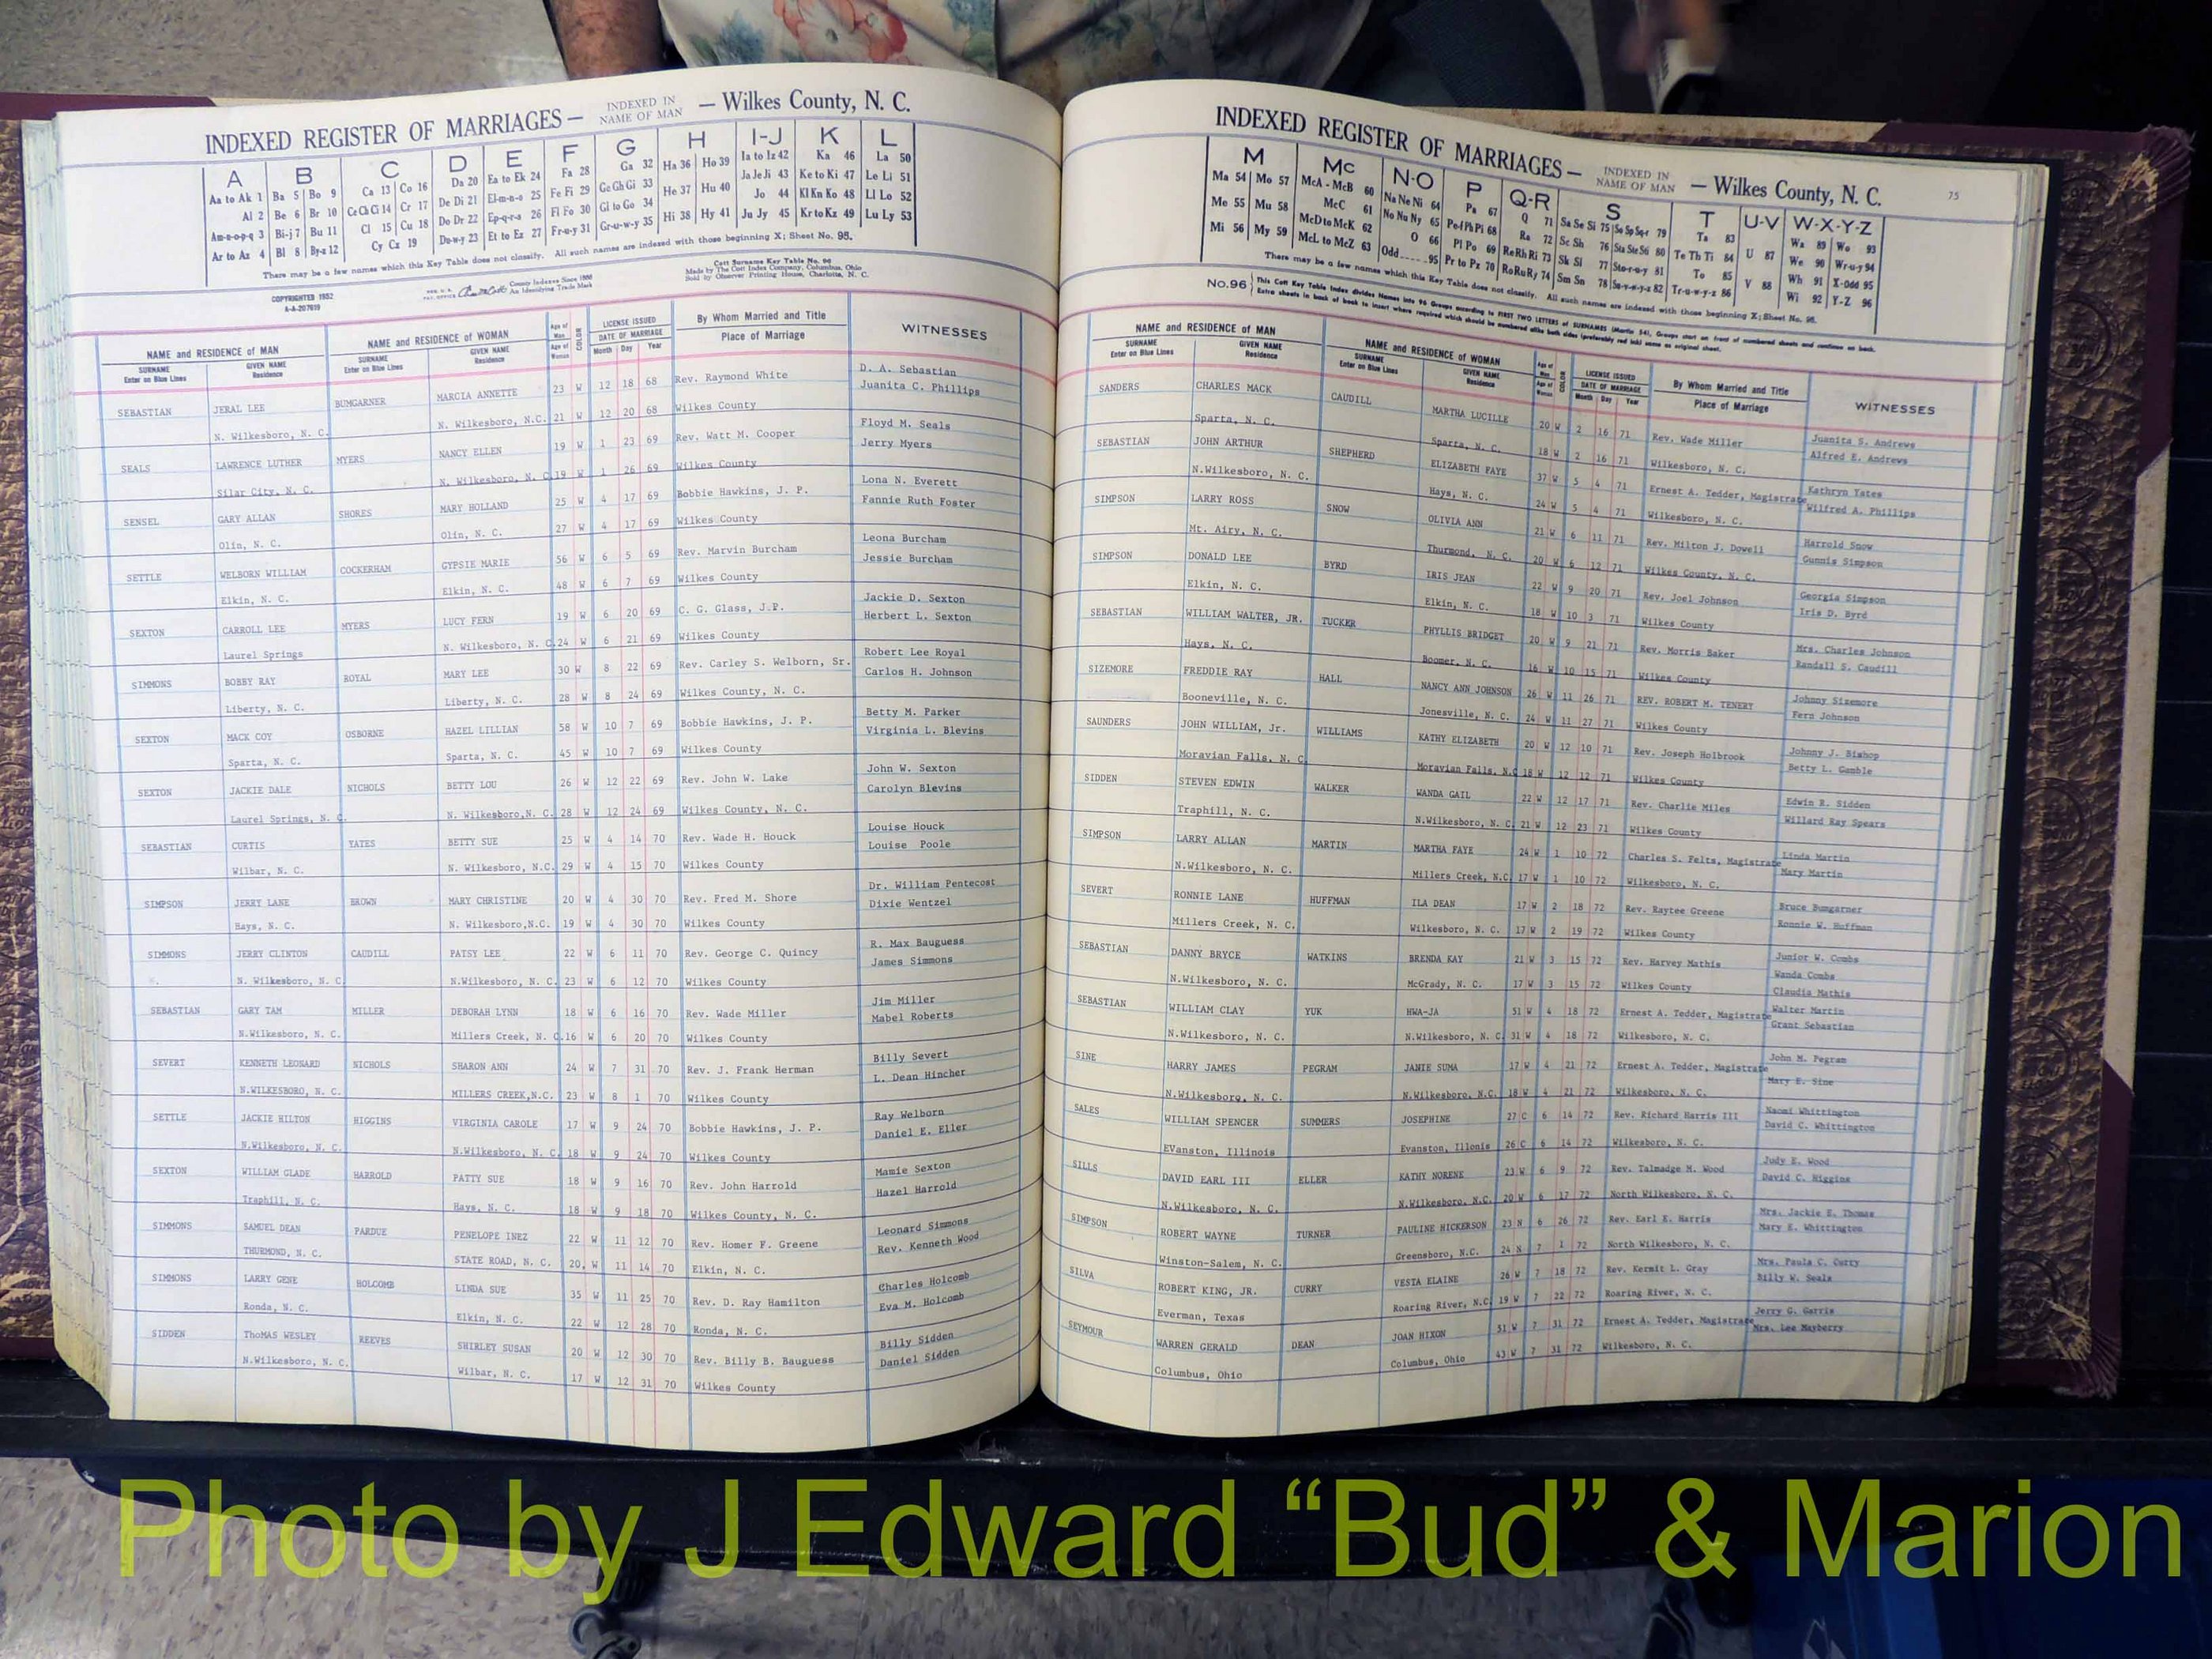 INDEXED REGISTER OF MARRIAGES— INDEXED IN NAME OF MAN — Wilkes County, N. C.
A B C D E F G H I-J K L
Aa to Ak 1 Ba 5 Bo 9 Ca 13 Co 16 Da 20 Ea to Ek 24 Fa 28 Ga 32 Ha 36 Ho 39 Ia to Iz 42 Ka 46 La 50
Al 2 Be 6 Br 10 Ce Ch Ci 14 Cr 17 De Di 21 El-m-n-o 25 Fe Fi 29 Ge Gh Gi 33 He 37 Hu 40 Ja Je Ji 43 Ke to Ki 47 Le Li 51
Am-n-o-p-q 3 Bi-j 7 Bu 11 Cl 15 Cu 18 Do Dr 22 Ep-q-r-s 26 Fl Fo 30 Gl to Go 34 Hi 38 Hy 41 Jo 44 Kl Kn Ko 48 Ll Lo 52
Ar to Az 4 Bl 8 By-z 12 Cy Cz 19 Du-w-y 23 Et to Ez 27 Fr-u-y 31 Gr-u-w-y 35 Ju Jy 45 Kr to Kz 49 Lu Ly 53
There may be a few names which this Key Table does not classify. All such names are indexed with those beginning X; Sheet No. 95.
COPYRIGHTED 1952
A-A-207619
County Indexes Since 1888
An Identifying Trade Mark
Cott Surname Key Table No. 96
Made by The Cott Index Company, Columbus, Ohio
Sold by Observer Printing House, Charlotte, N. C.
NAME and RESIDENCE of MAN NAME and RESIDENCE of WOMAN Age of Man Age of Woman COLOR LICENSE ISSUED DATE OF MARRIAGE By Whom Married and Title Place of Marriage WITNESSES
SURNAME Enter on Blue Lines GIVEN NAME Residence SURNAME Enter on Blue Lines GIVEN NAME Residence Month Day Year
SEBASTIAN JERAL LEE BUMGARNER MARCIA ANNETTE 23 W 12 18 68 Rev. Raymond White D. A. Sebastian
N. Wilkesboro, N. C. N. Wilkesboro, N.C. 21 W 12 20 68 Wilkes County Juanita C. Phillips
SEALS LAWRENCE LUTHER MYERS NANCY ELLEN 19 W 1 23 69 Rev. Watt M. Cooper Floyd M. Seals
Silar City, N. C. N. Wilkesboro, N. C. 19 W 1 26 69 Wilkes County Jerry Myers
SENSEL GARY ALLAN SHORES MARY HOLLAND 25 W 4 17 69 Bobbie Hawkins, J. P. Lona N. Everett
Olin, N. C. Olin, N. C. 27 W 4 17 69 Wilkes County Fannie Ruth Foster
SETTLE WELBORN WILLIAM COCKERHAM GYPSIE MARIE 56 W 6 5 69 Rev. Marvin Burcham Leona Burcham
Elkin, N. C. Elkin, N. C. 48 W 6 7 69 Wilkes County Jessie Burcham
SEXTON CARROLL LEE MYERS LUCY FERN 19 W 6 20 69 C. G. Glass, J.P. Jackie D. Sexton
Laurel Springs N. Wilkesboro, N. C. 24 W 6 21 69 Wilkes County Herbert L. Sexton
SIMMONS BOBBY RAY ROYAL MARY LEE 30 W 8 22 69 Rev. Carley S. Welborn, Sr. Robert Lee Royal
Liberty, N. C. Liberty, N. C. 28 W 8 24 69 Wilkes County, N. C. Carlos H. Johnson
SEXTON MACK COY OSBORNE HAZEL LILLIAN 58 W 10 7 69 Bobbie Hawkins, J. P. Betty M. Parker
Sparta, N. C. Sparta, N. C. 45 W 10 7 69 Wilkes County Virginia L. Blevins
SEXTON JACKIE DALE NICHOLS BETTY LOU 26 W 12 22 69 Rev. John W. Lake John W. Sexton
Laurel Springs, N. C. N. Wilkesboro,N. C. 28 W 12 24 69 Wilkes County, N. C. Carolyn Blevins
SEBASTIAN CURTIS YATES BETTY SUE 25 W 4 14 70 Rev. Wade H. Houck Louise Houck
Wilbar, N. C. N. Wilkesboro, N.C. 29 W 4 15 70 Wilkes County Louise Poole
SIMPSON JERRY LANE BROWN MARY CHRISTINE 20 W 4 30 70 Rev. Fred M. Shore Dr. William Pentecost
Hays, N. C. N. Wilkesboro,N.C. 19 W 4 30 70 Wilkes County Dixie Wentzel
SIMMONS JERRY CLINTON CAUDILL PATSY LEE 22 W 6 11 70 Rev. George C. Quincy R. Max Bauguess
N. Wilkesboro, N. C. N.Wilkesboro, N. C. 23 W 6 12 70 Wilkes County James Simmons
SEBASTIAN GARY TAM MILLER DEBORAH LYNN 18 W 6 16 70 Rev. Wade Miller Jim Miller
N.Wilkesboro, N. C. Millers Creek, N. C. 16 W 6 20 70 Wilkes County Mabel Roberts
SEVERT KENNETH LEONARD NICHOLS SHARON ANN 24 W 7 31 70 Rev. J. Frank Herman Billy Severt
N.WILKESBORO, N. C. MILLERS CREEK,N.C. 23 W 8 1 70 Wilkes County L. Dean Hincher
SETTLE JACKIE HILTON HIGGINS VIRGINIA CAROLE 17 W 9 24 70 Bobbie Hawkins, J. P. Ray Welborn
N.Wilkesboro, N. C. N.Wilkesboro, N. C. 18 W 9 24 70 Wilkes County Daniel E. Eller
SEXTON WILLIAM GLADE HARROLD PATTY SUE 18 W 9 16 70 Rev. John Harrold Mamie Sexton
Traphill, N. C. Hays, N. C. 18 W 9 18 70 Wilkes County, N. C. Hazel Harrold
SIMMONS SAMUEL DEAN PARDUE PENELOPE INEZ 22 W 11 12 70 Rev. Homer F. Greene Leonard Simmons
THURMOND, N. C. STATE ROAD, N. C. 20. W 11 14 70 Elkin, N. C. Rev. Kenneth Wood
SIMMONS LARRY GENE HOLCOMB LINDA SUE 35 W 11 25 70 Rev. D. Ray Hamilton Charles Holcomb
Ronda, N. C. Elkin, N. C. 22 W 12 28 70 Ronda, N. C. Eva M. Holcomb
SIDDEN ThoMAS WESLEY REEVES SHIRLEY SUSAN 20 W 12 30 70 Rev. Billy B. Bauguess Billy Sidden
N.Wilkesboro, N. C. Wilbar, N. C. 17 W 12 31 70 Wilkes County Daniel Sidden
INDEXED REGISTER OF MARRIAGES— INDEXED IN NAME OF MAN — Wilkes County, N. C. 75
M Mc N-O P Q-R S T U-V W-X-Y-Z
Ma 54 Mo 57 McA - McB 60 Na Ne Ni 64 Pa 67 Q 71 Sa Se Si 75 So Sp Sq-r 79 Ta 83 U 87 Wa 89 Wo 93
Me 55 Mu 58 McC 61 No Nu Ny 65 Pe-f Ph Pi 68 Ra 72 Sc Sh 76 Sta Ste Sti 80 Te Th Ti 84 V 88 We 90 Wr-u-y 94
Mi 56 My 59 McD to McK 62 O 66 Pl Po 69 Re Rh Ri 73 Sk Sl 77 Sto-r-u-y 81 To 85 Wh 91 X-Odd 95
McL to McZ 63 Odd 95 Pr to Pz 70 Ro Ru Ry 74 Sm Sn 78 Su-v-w-y-z 82 Tr-u-w-y-z 86 Wi 92 Y-Z 96
There may be a few names which this Key Table does not classify. All such names are indexed with those beginning X; Sheet No. 95.
No.96 This Cott Key Table Index divides Names into 96 Groups according to FIRST TWO LETTERS of SURNAMES (Martin 54). Groups start on front of numbered sheets and continue on back.
Extra sheets in back of book to insert where required which should be numbered alike both sides (preferably red ink) same as original sheet.
NAME and RESIDENCE of MAN NAME and RESIDENCE of WOMAN Age of Man Age of Woman COLOR LICENSE ISSUED DATE OF MARRIAGE By Whom Married and Title Place of Marriage WITNESSES
SURNAME Enter on Blue Lines GIVEN NAME Residence SURNAME Enter on Blue Lines GIVEN NAME Residence Month Day Year
SANDERS CHARLES MACK CAUDILL MARTHA LUCILLE 20 W 2 16 71 Rev. Wade Miller Juanita S. Andrews
Sparta, N. C. Sparta, N. C. 18 W 2 16 71 Wilkesboro, N. C. Alfred E. Andrews
SEBASTIAN JOHN ARTHUR SHEPHERD ELIZABETH FAYE 37 W 5 4 71 Ernest A. Tedder, Magistrate Kathryn Yates
N.Wilkesboro, N. C. Hays, N. C. 24 W 5 4 71 Wilkesboro, N. C. Wilfred A. Phillips
SIMPSON LARRY ROSS SNOW OLIVIA ANN 21 W 6 11 71 Rev. Milton J. Dowell Harrold Snow
Mt. Airy, N. C. Thurmond, N. C. 20 W 6 12 71 Wilkes County, N. C. Gunnis Simpson
SIMPSON DONALD LEE BYRD IRIS JEAN 22 W 9 20 71 Rev. Joel Johnson Georgia Simpson
Elkin, N. C. Elkin, N. C. 18 W 10 3 71 Wilkes County Iris D. Byrd
SEBASTIAN WILLIAM WALTER, JR. TUCKER PHYLLIS BRIDGET 20 W 9 21 71 Rev. Morris Baker Mrs. Charles Johnson
Hays, N. C. Boomer, N. C. 16 W 10 15 71 Wilkes County Randall S. Caudill
SIZEMORE FREDDIE RAY HALL NANCY ANN JOHNSON 26 W 11 26 71 REV. ROBERT M. TENERY Johnny Sizemore
Booneville, N. C. Jonesville, N. C. 24 W 11 27 71 Wilkes County Fern Johnson
SAUNDERS JOHN WILLIAM, Jr. WILLIAMS KATHY ELIZABETH 20 W 12 10 71 Rev. Joseph Holbrook Johnny J. Bishop
Moravian Falls, N. C. Moravian Falls, N.C 18 W 12 12 71 Wilkes County Betty L. Gamble
SIDDEN STEVEN EDWIN WALKER WANDA GAIL 22 W 12 17 71 Rev. Charlie Miles Edwin R. Sidden
Traphill, N. C. N.Wilkesboro, N. C. 21 W 12 23 71 Wilkes County Willard Ray Spears
SIMPSON LARRY ALLAN MARTIN MARTHA FAYE 24 W 1 10 72 Charles S. Felts, Magistrate Linda Martin
N.Wilkesboro, N. C. Millers Creek, N.C. 17 W 1 10 72 Wilkesboro, N. C. Mary Martin
SEVERT RONNIE LANE HUFFMAN ILA DEAN 17 W 2 18 72 Rev. Raytee Greene Bruce Bumgarner
Millers Creek, N. C. Wilkesboro, N. C. 17 W 2 19 72 Wilkes County Ronnie W. Huffman
SEBASTIAN DANNY BRYCE WATKINS BRENDA KAY 21 W 3 15 72 Rev. Harvey Mathis Junior W. Combs
Wanda Combs
N.Wilkesboro, N. C. McGrady, N. C. 17 W 3 15 72 Wilkes County Claudia Mathis
SEBASTIAN WILLIAM CLAY YUK HWA-JA 51 W 4 18 72 Ernest A. Tedder, Magistrate Walter Martin
N.Wilkesboro, N. C. N.Wilkesboro, N. C. 31 W 4 18 72 Wilkesboro, N. C. Grant Sebastian
SINE HARRY JAMES PEGRAM JANIE SUMA 17 W 4 21 72 Ernest A. Tedder, Magistrate John M. Pegram
N.Wilkesboro, N. C. N.Wilkesboro, N.C. 18 W 4 21 72 Wilkesboro, N. C. Mary E. Sine
SALES WILLIAM SPENCER SUMMERS JOSEPHINE 27 C 6 14 72 Rev. Richard Harris III Naomi Whittington
EVanston, Illinois Evanston, Illonis 26 C 6 14 72 Wilkesboro, N. C. David C. Whittington
SILLS DAVID EARL III ELLER KATHY NORENE 23 W 6 9 72 Rev. Talmadge M. Wood Judy E. Wood
N.Wilkesboro, N. C. N.Wilkesboro, N.C. 20 W 6 17 72 North Wilkesboro, N. C. David C. Higgins
SIMPSON ROBERT WAYNE TURNER PAULINE HICKERSON 23 N 6 26 72 Rev. Earl E. Harris Mrs. Jackie E. Thomas
Winston-Salem, N. C. Greensboro, N.C. 24 N 7 1 72 North Wilkesboro, N. C. Mary E. Whittington
SILVA ROBERT KING, JR. CURRY VESTA ELAINE 26 W 7 18 72 Rev. Kermit L. Gray Mrs. Paula C. Curry
Everman, Texas Roaring River, N.C. 19 W 7 22 72 Roaring River, N. C. Billy W. Seals
SEYMOUR WARREN GERALD DEAN JOAN HIXON 51 W 7 31 72 Ernest A. Tedder, Magistrate Jerry G. Garris
Columbus, Ohio Columbus, Ohio 43 W 7 31 72 Wilkesboro, N. C. Mrs. Lee Mayberry
Photo by J Edward “Bud” & Marion